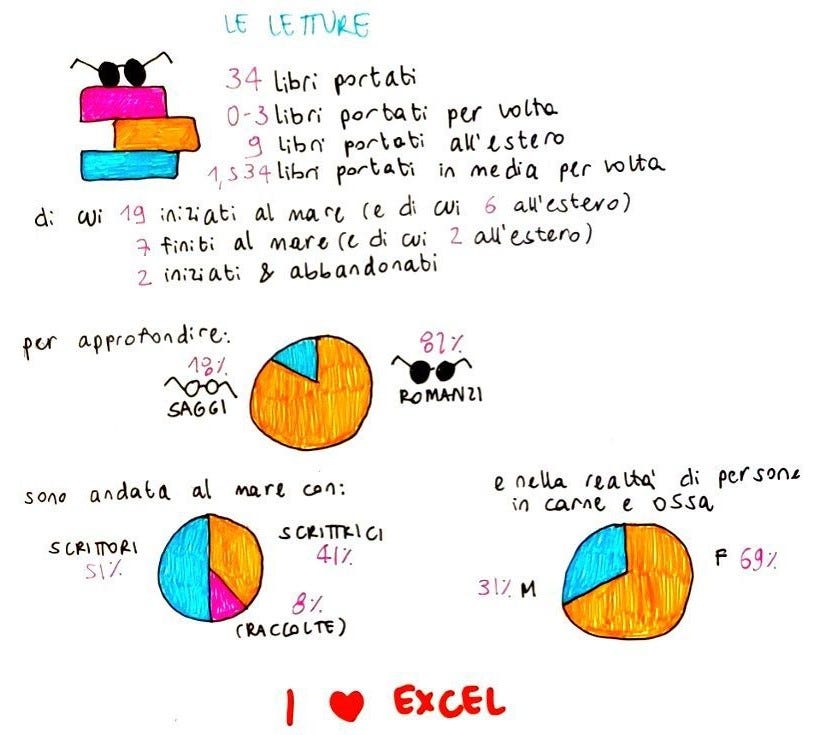 LE LETTURE
34 libri portati
0-3 libri portati per volta
9 libri portati all'estero
1,534 libri portati in media per volta
di cui 19 iniziati al mare (e di cui 6 all'estero)
7 finiti al mare (e di cui 2 all'estero)
2 iniziati & abbandonati
per approfondire:
18%
SAGGI
82%
ROMANZI
sono andata al mare con:
SCRITTORI
51%
SCRITTRICI
41%
8%
(RACCOLTE)
e nella realtà di persone
in carne e ossa
31% M
F 69%
I ♥ EXCEL